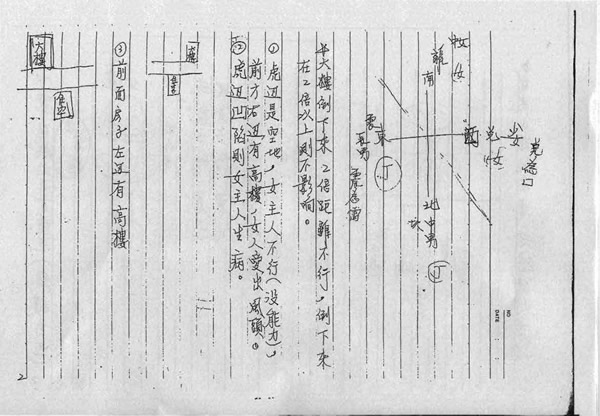 中女
女
龍
南
兌
少女
西
兌
女
震
東
長男
丁
北
中男
坎
丁
NO.
DATE
半大樓倒下來2倍距離不行，倒下來
在2倍以上則不影响。
①虎边是空地，女主人不行（沒能力），
前方右边有高樓，女人愛出風頭。
②虎边凹陷則女主人生病。
③前面房子左边有高樓
大樓
2